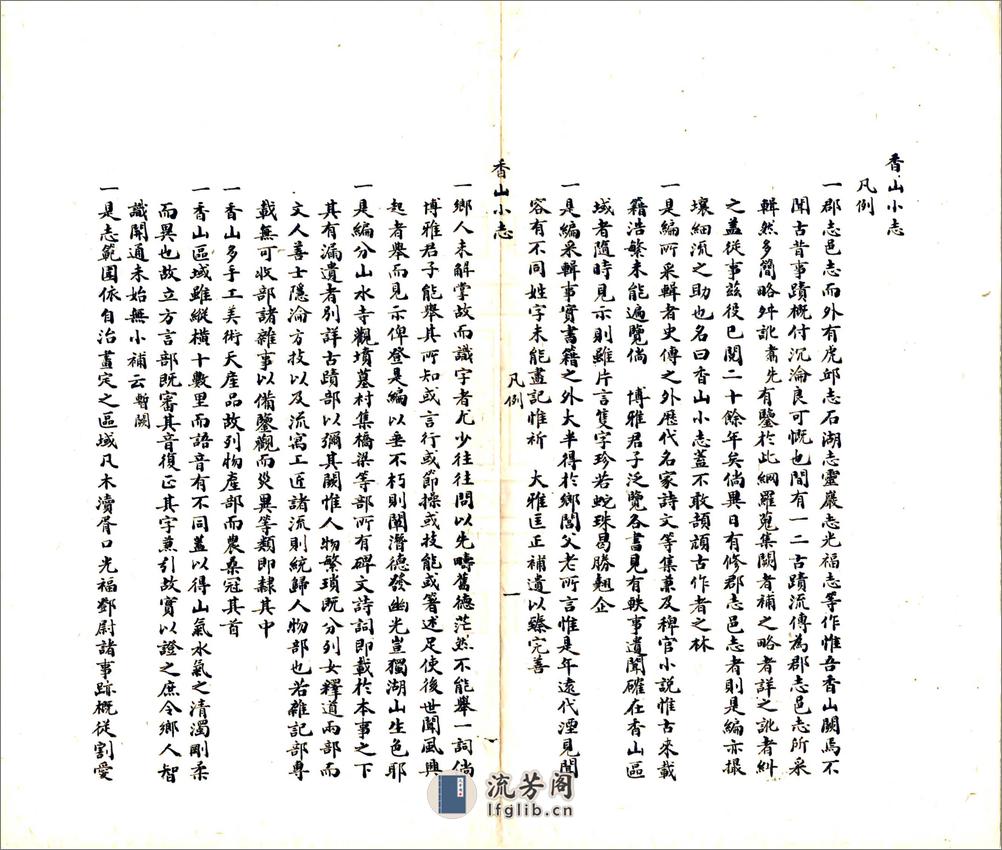 香山小志
凡例
一郡志邑志而外有虎邱志石湖志靈巖志光福志等作惟吾香山闕焉不
聞古昔事蹟概付沉淪良可慨也間有一二古蹟流傳為郡志邑志所采
輯然多簡略舛訛翥先有鑒於此網羅蒐集闕者補之略者詳之訛者糾
之蓋從事茲役已閱二十餘年矣倘異日有修郡志邑志者則是編亦撮
壤細流之助也名曰香山小志蓋不敢頡頏古作者之林
一是編所采輯者史傳之外歷代名家詩文等集兼及稗官小說惟古來載
籍浩繁未能遍覽倘 博雅君子泛覽各書見有軼事遺聞確在香山區
域者隨時見示則雖片言隻字珍若蛇珠曷勝翹企
一是編采輯事實書籍之外大半得於鄉閭父老所言惟是年遠代湮見聞
容有不同姓字未能盡記惟祈 大雅匡正補遺以臻完善
凡例
一
香山小志
一鄉人未解掌故而識字者尤少往往問以先疇舊德茫然不能舉一詞倘
博雅君子能舉其所知或言行或節操或技能或著述足使後世聞風興
起者舉而見示俾登是編以垂不朽則闡潛德發幽光豈獨湖山生色耶
一是編分山水寺觀墳墓村集橋梁等部所有碑文詩詞即載於本事之下
其有漏遺者別詳古蹟部以彌其闕惟人物繁瑣既分列女釋道兩部而
文人善士隱淪方技以及流寓工匠諸流則統歸人物部也若雜記部專
載無可收部諸雜事以備鑒觀而災異等類即隸其中
一香山多手工美術天產品故列物產部而農桑冠其首
一香山區域雖縱橫十數里而語音有不同蓋以得山氣水氣之清濁剛柔
而異也故立方言部既審其音復正其字兼引故實以證之庶令鄉人智
識開通未始無小補云暫闕
一是志範圍依自治畫定之區域凡木瀆胥口光福鄧尉諸事跡概從割愛
流芳阁
lfglib.cn